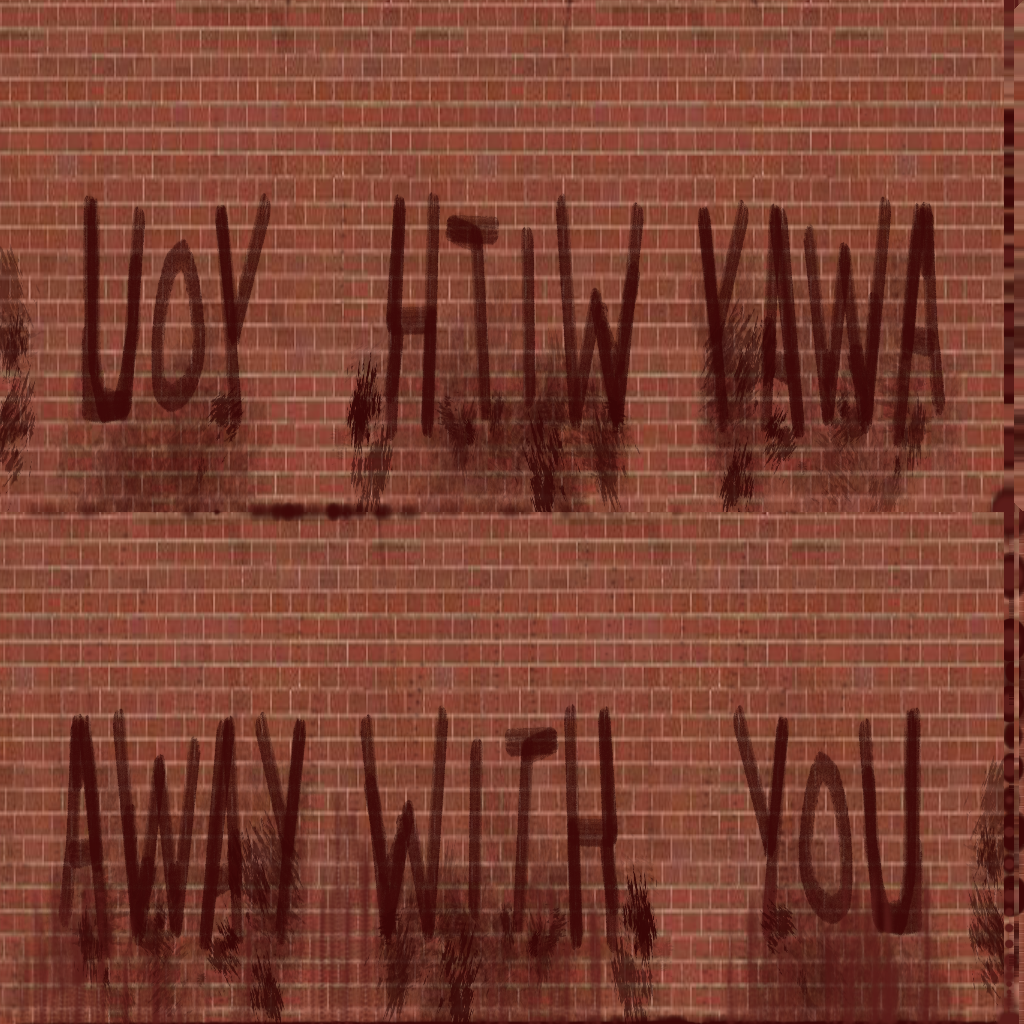 UOY HTIW YAWA
AWAY WITH YOU